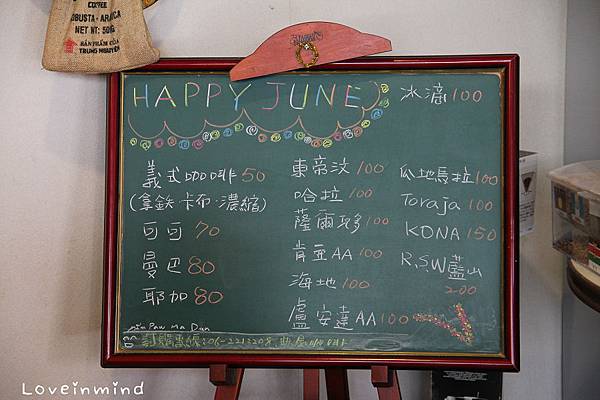 COFFEE
ROBUSTA - ARABICA
NET WT: 500
SẢN PHẨM CỦA
TRUNG NGUYEN
HAPPY JUNE
義式咖啡 50
(拿鉄.卡布.濃縮)
可可 70
曼巴 80
耶加 80
東帝汶 100
哈拉 100
薩爾瓦多 100
肯亞AA 100
海地 100
盧安達AA 100
冰滴 100
瓜地馬拉 100
Toraja 100
KONA 150
R.S.W藍山
200
Loveinmind